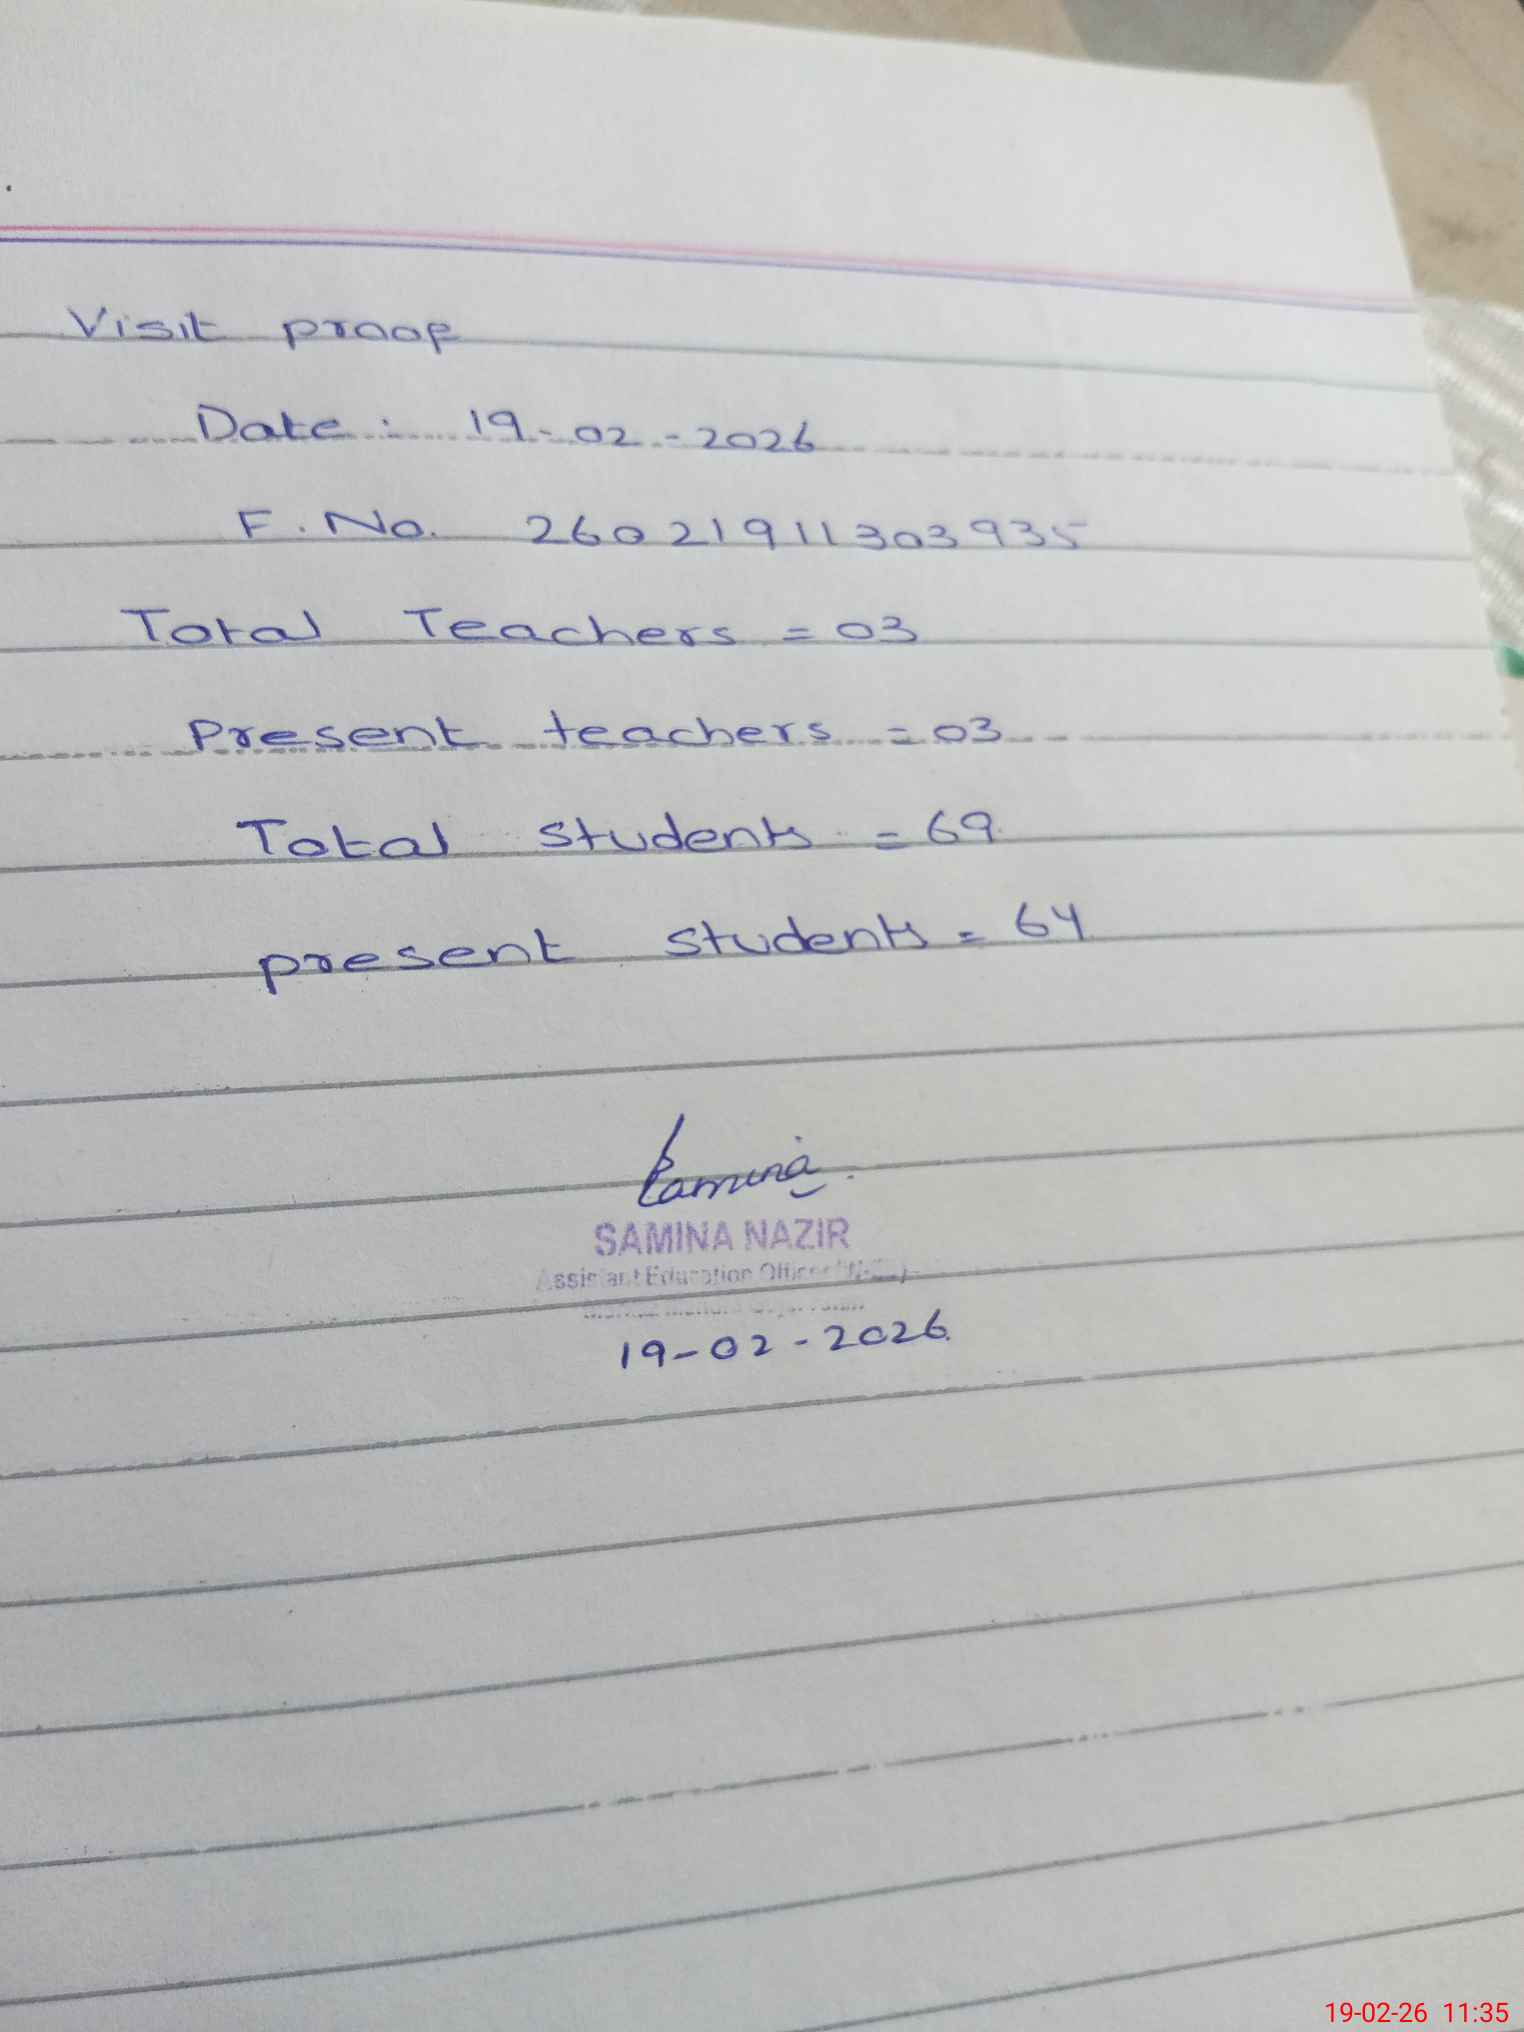 Visit proof
Date: 19-02-2026
F.No. 26021911303935
Total Teachers = 03
Present teachers = 03
Total students = 69
present students = 64
Samina
SAMINA NAZIR
Assistant Education Officer
19-02-2026
19-02-26 11:35